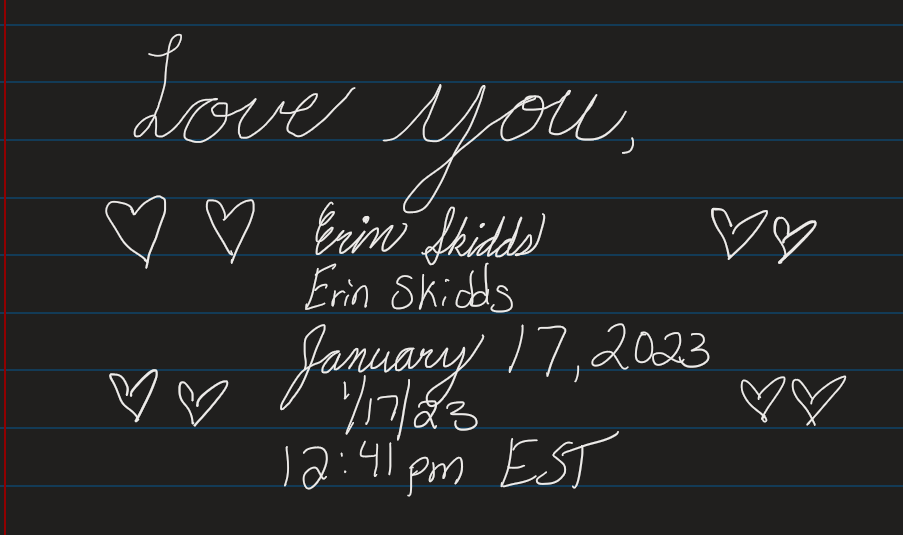 Love you,
Erin Skidds
Erin Skidds
January 17, 2023
1/17/23
12:41pm EST